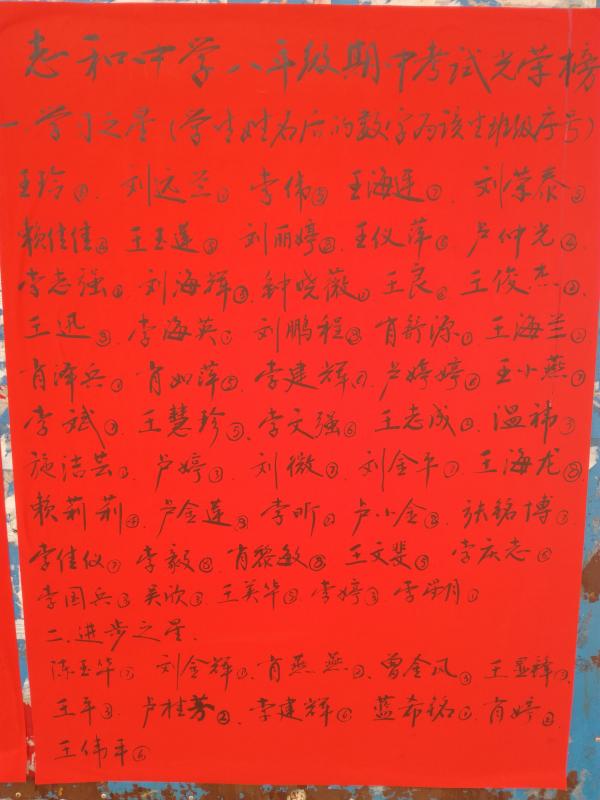 志和中学八年级期中考试光荣榜
一.学习之星(学生姓名后的数字为该生班级序号)
王玲 刘远兰 李伟⑤ 王海莲⑦ 刘荣泰
赖佳佳 王玉莲 刘丽婷 王仪萍⑥ 卢仲光④
李志强 刘海辉③ 钟晓薇 王良⑥ 王俊杰
王迅⑧ 李海英 刘鹏程⑧ 肖舒源 王海兰
肖泽兵 肖如萍⑤ 李建辉 卢婷婷⑥ 王小燕⑦
李斌 王慧珍⑤ 李文强⑥ 王志成 温祎
施洁芸 卢婷③ 刘微⑦ 刘金午 王海龙⑧
赖莉莉④ 卢金莲⑧ 李昕 卢小金⑧ 张铭博
李佳仪 李毅⑧ 肖黎敏⑧ 王文斐⑤ 李庆志⑥
李国兵③ 吴欣③ 王英华 李婷③ 李朔月
二.进步之星.
陈玉华⑦ 刘金辉 肖燕燕 曾金凤③ 王显祎
王平③ 卢桂芳② 李建辉⑥ 蓝希铭 肖婷②
王伟平⑥